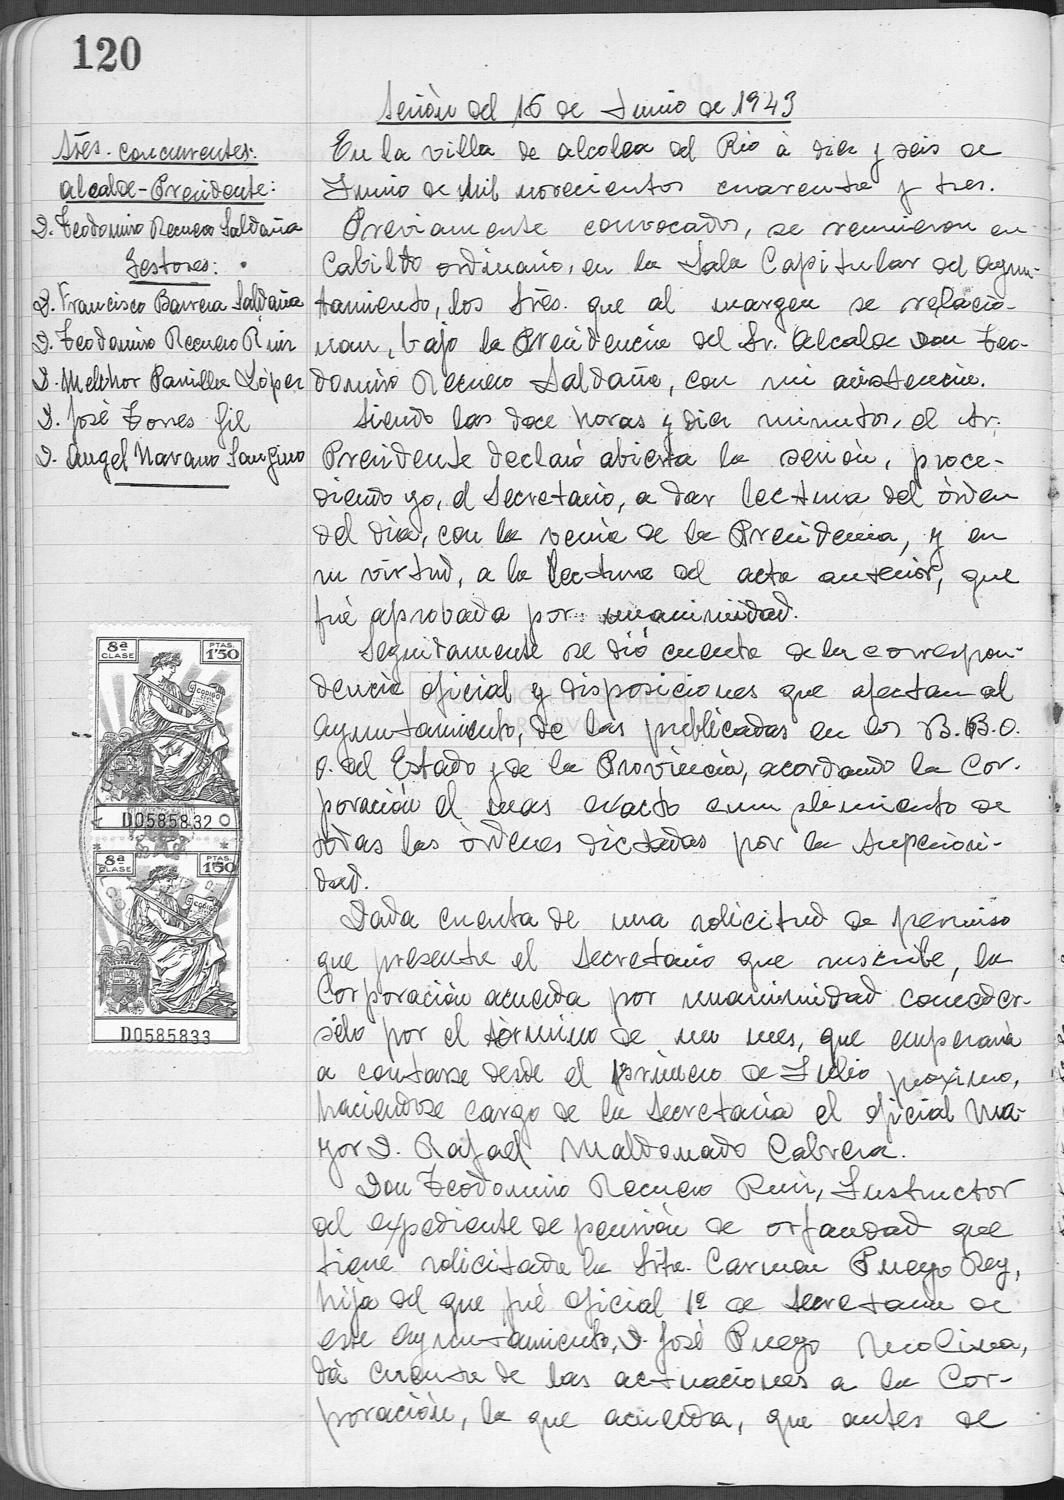 120
Sesión del 16 de Junio de 1943
Sres. concurrentes:
Alcalde-Presidente:
D. Teodomiro Recuero Saldaña
Gestores:
D. Francisco Barrera Saldaña
D. Teodomiro Recuero Ruiz
D. Melchor Parrilla López
D. José Torres Gil
D. Angel Navarro Sanguino
En la villa de Alcolea del Rio á diez y seis de
Junio de mil novecientos cuarenta y tres.
Previamente convocados, se reunieron en
Cabildo ordinario, en la Sala Capitular del Ayun-
tamiento, los Sres. que al margen se relacio-
nan, bajo la Presidencia del Sr. Alcalde Don Teo-
domiro Recuero Saldaña, con mi asistencia.
Siendo las doce horas y diez minutos, el Sr.
Presidente declaró abierta la sesión, proce-
diendo yo, el Secretario, a dar lectura del órden
del dia, con la venia de la Presidencia, y en
su virtud, a la lectura del acta anterior, que
fué aprobada por unanimidad.
Seguidamente se dió cuenta de la correspon-
dencia oficial y disposiciones que afectan al
Ayuntamiento, de las publicadas en los B.B.O.
O. del Estado y de la Provincia, acordando la Cor-
poración el mas exacto cumplimiento de
todas las órdenes dictadas por la Superiori-
dad.
Dada cuenta de una solicitud de permiso
que presenta el Secretario que suscribe, la
Corporación acuerda por unanimidad conceder-
sélo por el término de un mes, que empezaría
a contarse desde el primero de Julio próximo,
haciendose cargo de la Secretaria el oficial Ma-
yor D. Rafael Maldonado Cabrera.
Don Teodomiro Recuero Ruiz, Instructor
del expediente de pensión de orfandad que
tiene solicitada la Srta. Carmen Puego Rey,
hija del que fué oficial 1º de Secretaria de
este Ayuntamiento, D. José Puego Molina,
dá cuenta de las actuaciones a la Cor-
poración, la que acuerda, que antes de
8ª CLASE
PTAS. 1'50
CODIGO
D0585832
8ª CLASE
PTAS. 1'50
CODIGO
D0585833
DIPUTACIÓN DE SEVILLA
ARCHIVO